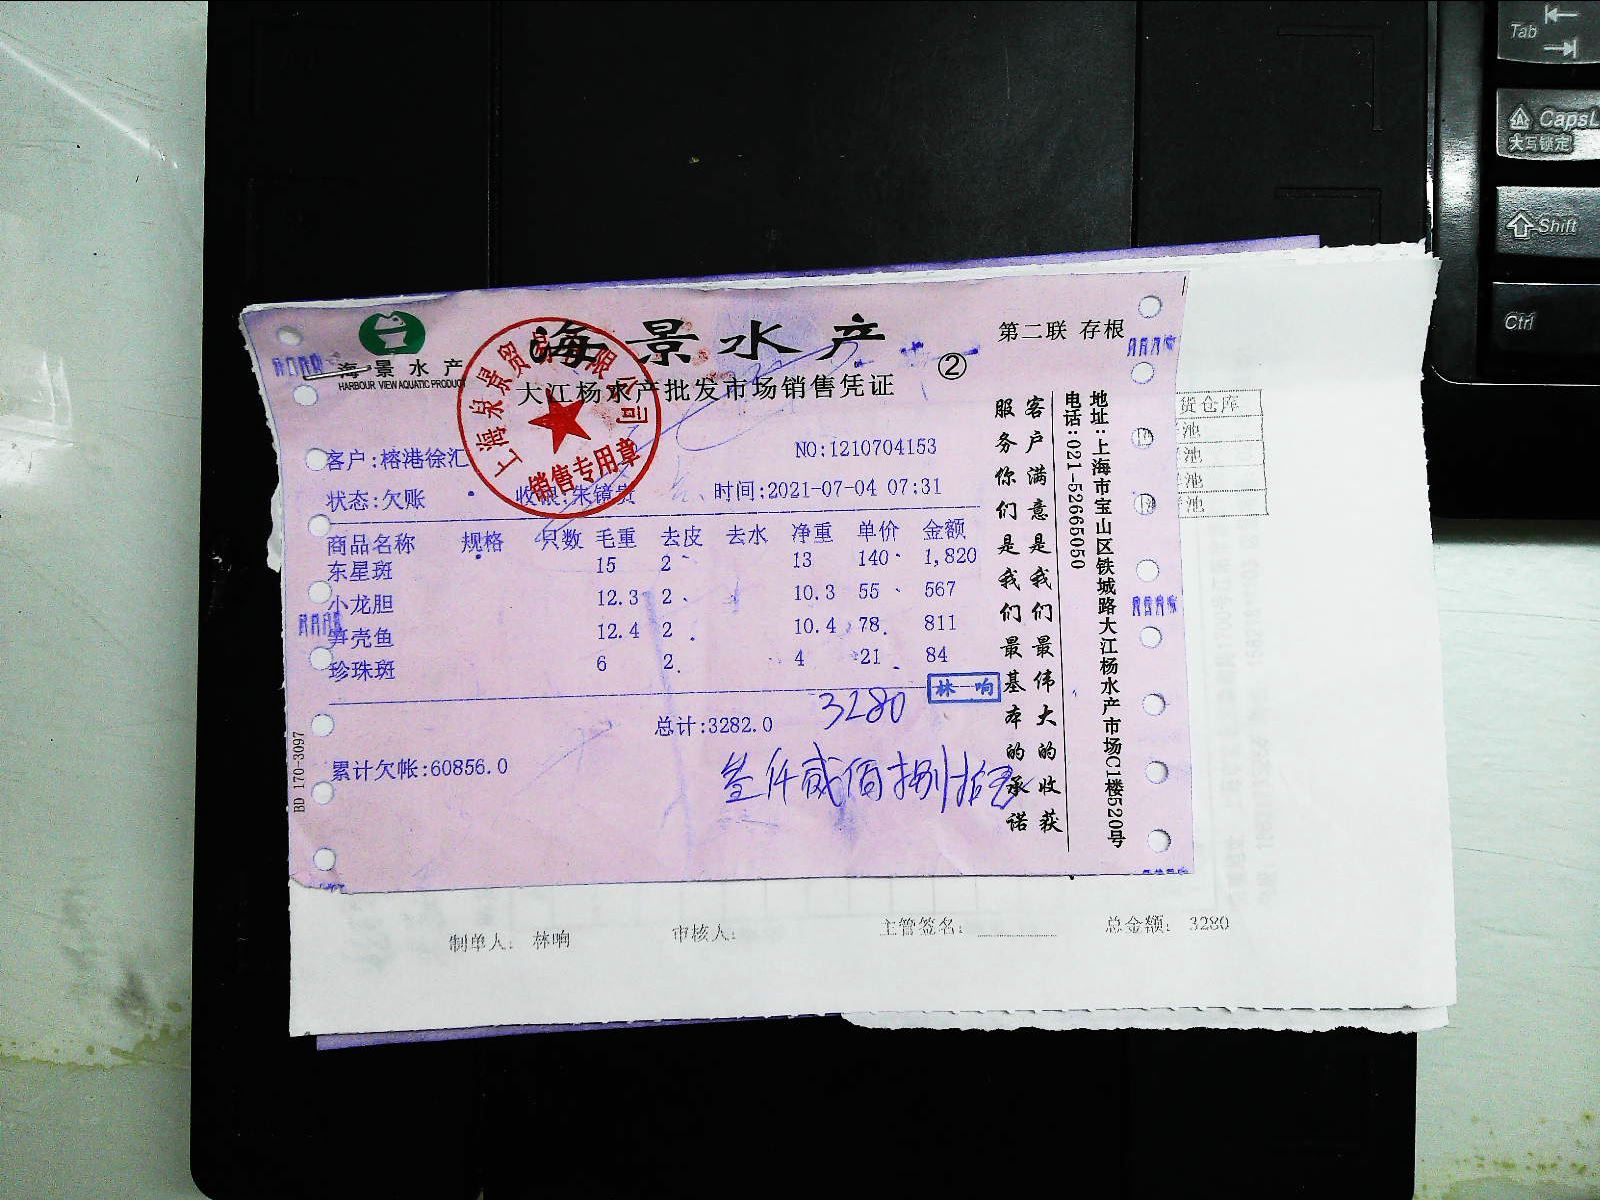 海景水产
HARBOUR VIEW AQUATIC PRODUCT
海景水产
第二联 存根
大江杨水产批发市场销售凭证
②
上海泉景贸易有限公司
销售专用章
客户:榕港徐汇
NO:1210704153
状态:欠账
收银:朱镜贵
时间:2021-07-04 07:31
商品名称 规格 只数 毛重 去皮 去水 净重 单价 金额
东星斑 15 2 13 140 1,820
小龙胆 12.3 2 10.3 55 567
笋壳鱼 12.4 2 10.4 78 811
珍珠斑 6 2 4 21 84
总计:3282.0
3280
林响
累计欠帐:60856.0
叁仟贰佰捌拾
客户满意是我们最伟大的收获
服务你们是我们最基本的承诺
地址:上海市宝山区铁城路大江杨水产市场C1楼520号
电话:021-52665050
BD 170-3097
货仓库
池
池
池
池
制单人: 林响
审核人:
主管签名:
总金额: 3280
Tab
CapsL
大写锁定
Shift
Ctrl